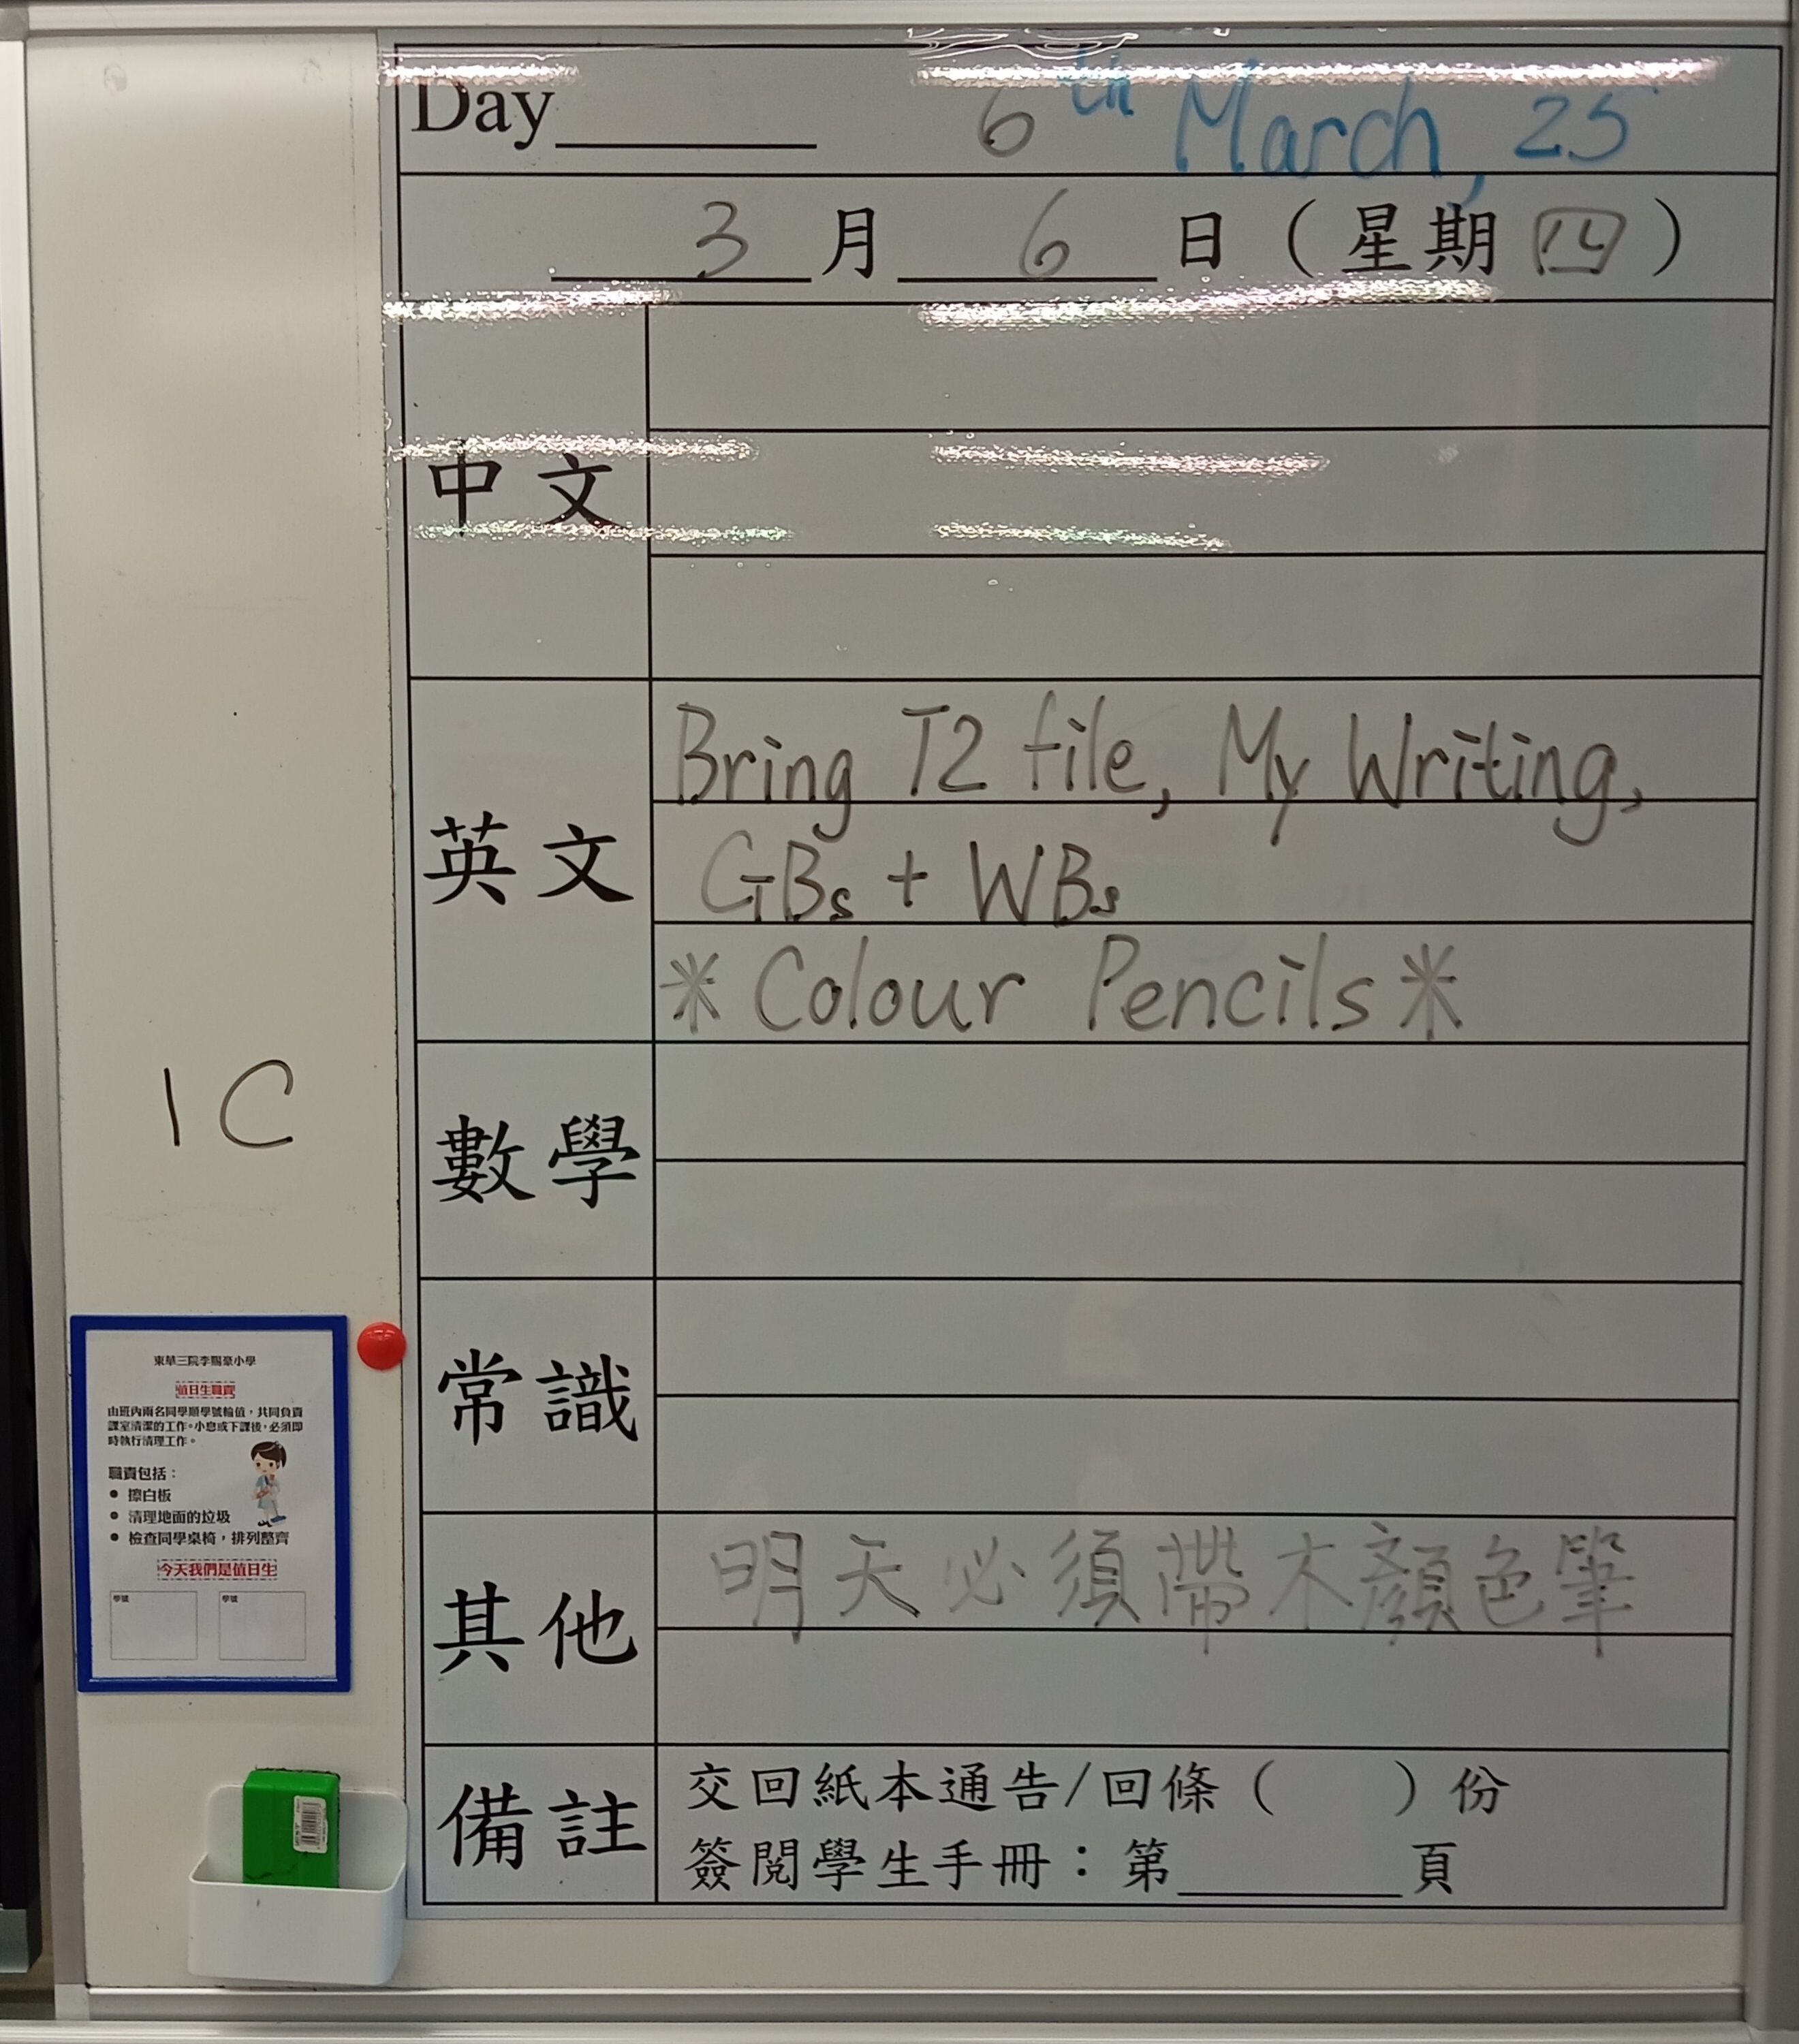 Day______ 6th March, 25
3 月 6 日 ( 星期 四 )
中文
英文
Bring T2 file, My Writing,
GBs + WBs
* Colour Pencils *
數學
常識
其他
明天必須帶木顏色筆
備註
交回紙本通告/回條 (    ) 份
簽閱學生手冊：第______頁
1C
東華三院李賜豪小學
值日生職責
由班內兩名同學順學號輪值，共同負責
課室清潔的工作。小息或下課後，必須即
時執行清理工作。
職責包括：
• 擦白板
• 清理地面的垃圾
• 檢查同學桌椅，排列整齊
今天我們是值日生
學號
學號